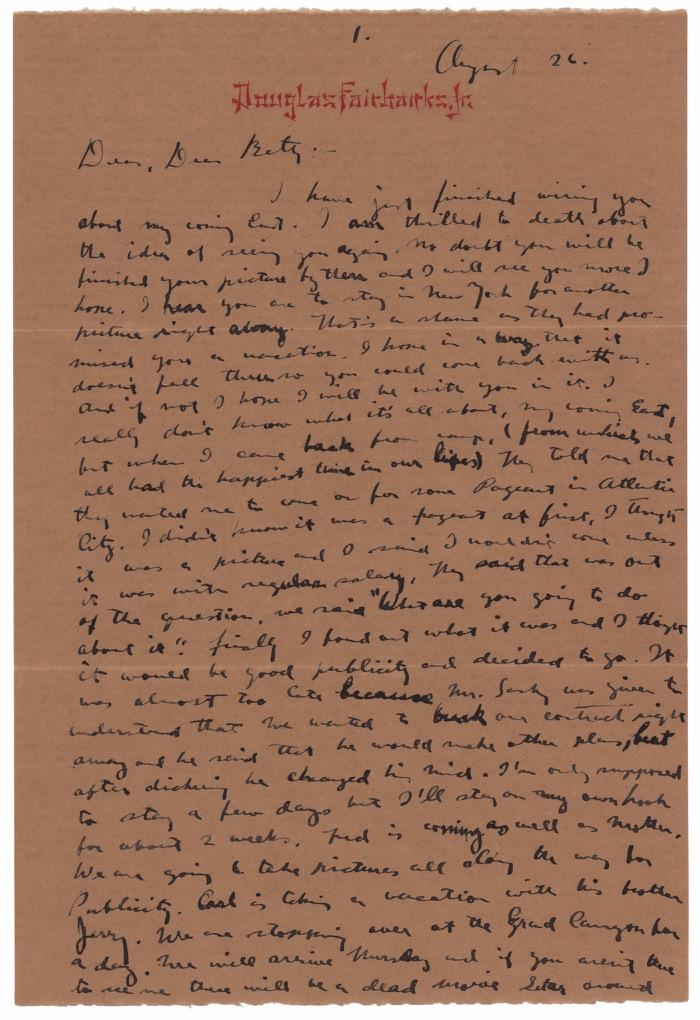 1.
August 26.
Douglas Fairbanks, Jr.
Dear, Dear Betty:—
I have just finished wiring you
about my coming East. I am thrilled to death about
the idea of seeing you again. No doubt you will be
finished your picture by then and I will see you more I
hope. I hear you are to stay in New York for another
picture right away. That's a shame as they had pro-
mised you a vacation. I hope in a way that it
doesn't fall through so you could come back with us.
And if not I hope I will be with you in it. I
really don't know what it's all about, my coming East,
but when I came back from camp, (from which we
all had the happiest time in our lives) They told me that
they wanted me to come on for some Pageant in Atlantic
City. I didn't know it was a pageant at first, I thought
it was a picture and I said I wouldn't come unless
it was with regular salary. They said that was out
of the question, we said "What are you going to do
about it". Finally I found out what it was and I thought
it would be good publicity and decided to go. It
was almost too late because Mr. Lasky was given to
understand that we wanted to break our contract right
away and he said that he would make other plans, but
after dickering he changed his mind. I'm only supposed
to stay a few days but I'll stay on my own hook
for about 2 weeks. Ted is coming as well as Mother.
We are going to take pictures all along the way for
Publicity. Carl is taking a vacation with his brother
Jerry. We are stopping over at the Grand Canyon for
a day. We will arrive Thursday and if you aren't there
to see me there will be a dead movie star around